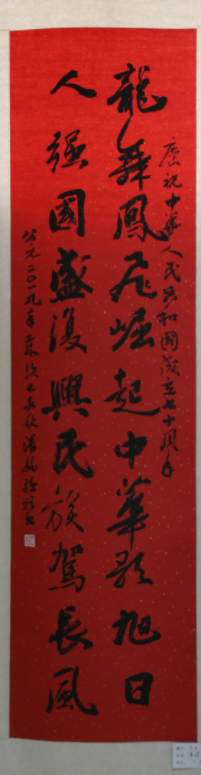 慶祝中華人民共和國成立七十周年
龍舞鳳飛崛起中華歌旭日
人强國盛復興民族駕長風
公元二〇一九年